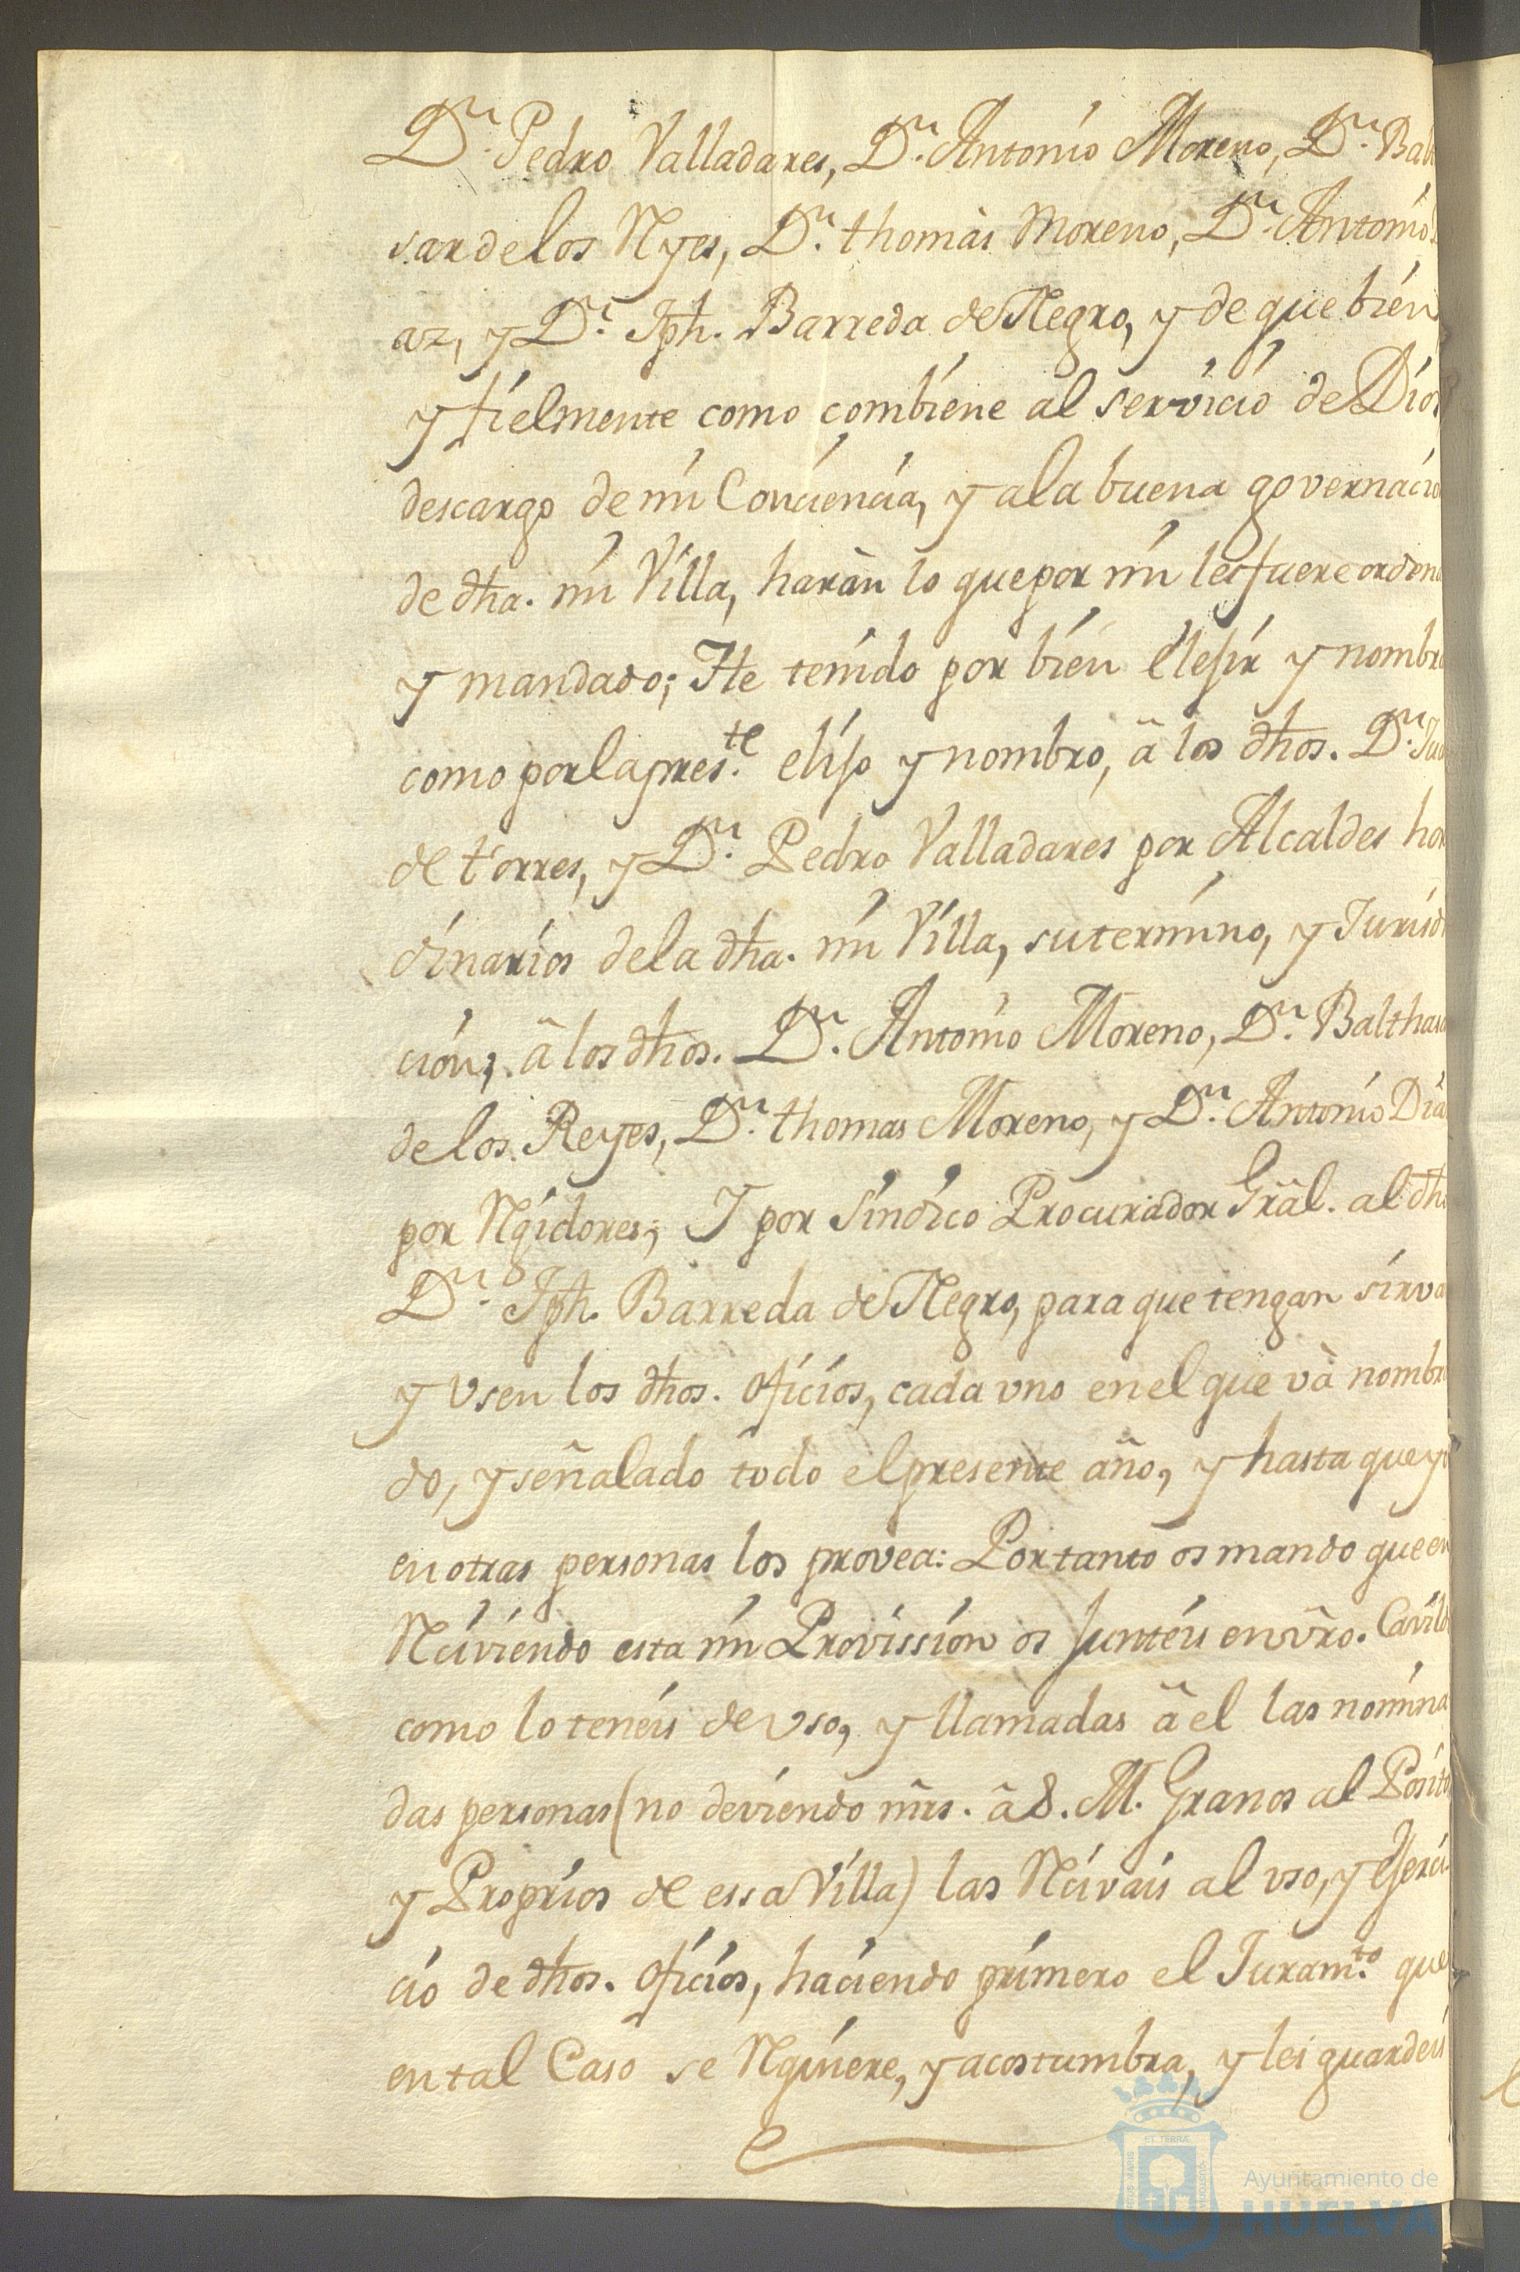 Dn. Pedro Valladares, Dn. Antonio Moreno, Dn. Balt
sar de los Ryes, Dn. thomàs Moreno, Dn. Antonio
az, y Dn. Jph. Barreda de Negro, y de que bien
y fielmente como combiene al servicio de Dios
descargo de mi Conciencia, y a la buena governacio
de dha. mi Villa, haràn lo que por mi les fuere ordena
y mandado; He tenido por bien elejir y nombra
como por la preste. elijo y nombro, â los dhos. Dn. Jua
de torres, y Dn. Pedro Valladares por Alcaldes hor
dinarios de la dha. mi Villa, su termino, y Jurisdi
ción; â los dhos. Dn. Antonio Moreno, Dn. Balthasa
de los Reyes, Dn. thomas Moreno, y Dn. Antonio Dia
por Rgidores; Y por Sindico Procurador Grâl. al dho
Dn. Jph. Barreda de Negro, para que tengan sirva
y vsen los dhos. oficios, cada vno en el que và nombra
do, y señalado todo el presente año, y hasta que yo
en otras personas los provea: Por tanto os mando que en
Rciviendo esta mi Provission os junteis en vro. Cavildo
como lo teneis de vso, y llamadas â el las nomina
das personas (no deviendo mrs. â S. M. Granos al Posito
y Proprios de essa Villa) las Rcivais al vso, y Exerci
cio de dhos. oficios, haciendo primero el Juramto. que
en tal Caso se Rquiere, y acostumbra, y les guardeis
ET TERRA
Ayuntamiento de
HUELVA